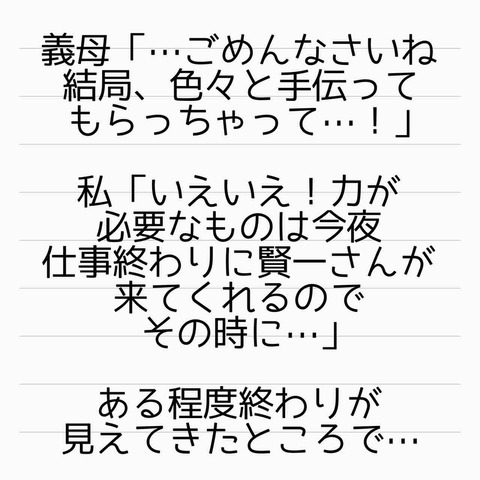 義母「…ごめんなさいね
結局、色々と手伝って
もらっちゃって…！」
私「いえいえ！力が
必要なものは今夜
仕事終わりに賢一さんが
来てくれるので
その時に…」
ある程度終わりが
見えてきたところで…